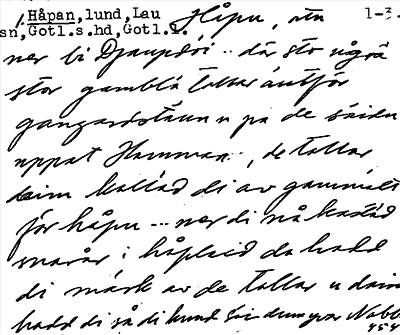 1. Håpan, lund, Lau Håpu, utn 1-3.
sn, Gotl.s.hd, Gotl.l.
ner bi Djaupdői .. där sto någrä
stor gamblä tallar äutför
gangardstäunu pa de säidu
uppat Hammarn .. , de tallar
daim kallad di av gammält
för håpu ... ner di nå kastäd
snarar i håplaid da hadd
di märk av de tallar u daim
hadd di så di kund säi dum yvar Nabb